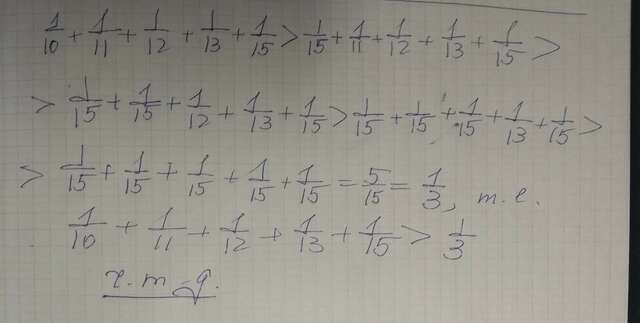 1/10 + 1/11 + 1/12 + 1/13 + 1/15 > 1/15 + 1/11 + 1/12 + 1/13 + 1/15 >
> 1/15 + 1/15 + 1/12 + 1/13 + 1/15 > 1/15 + 1/15 + 1/15 + 1/13 + 1/15 >
> 1/15 + 1/15 + 1/15 + 1/15 + 1/15 = 5/15 = 1/3, т.е.
1/10 + 1/11 + 1/12 + 1/13 + 1/15 > 1/3
ч.т.д.